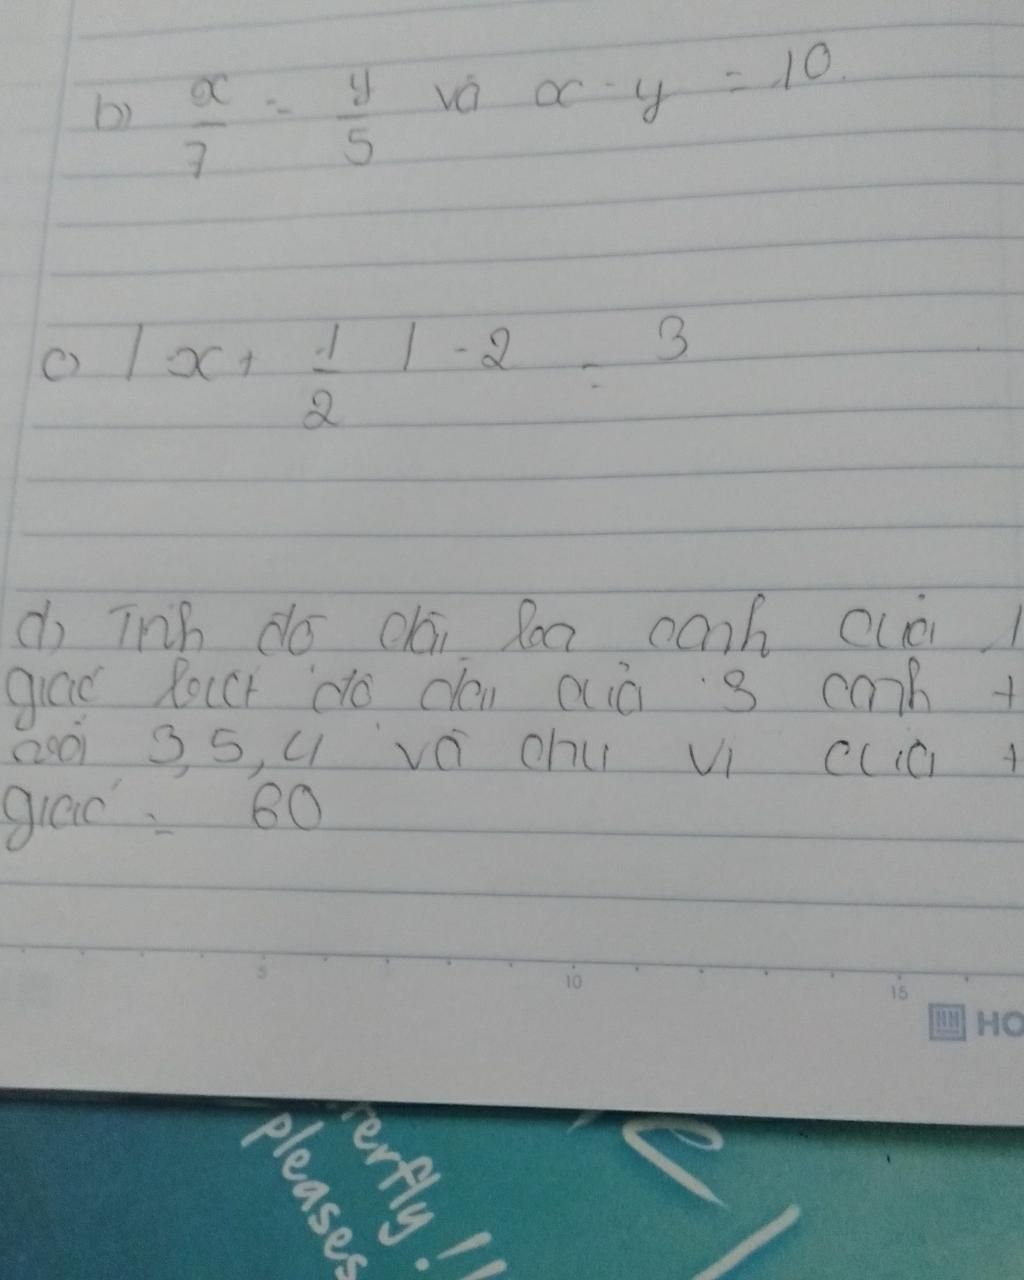 b) x/7 = y/5 và x - y = 10.
c) | x + 1/2 | - 2 = 3
d) Tính độ dài cạnh của 1
giác độ dài của 3 cạnh +
với 3, 5, 4 và chu vi của +
giác = 60
5 10 15
HO
erfly!!
pleases